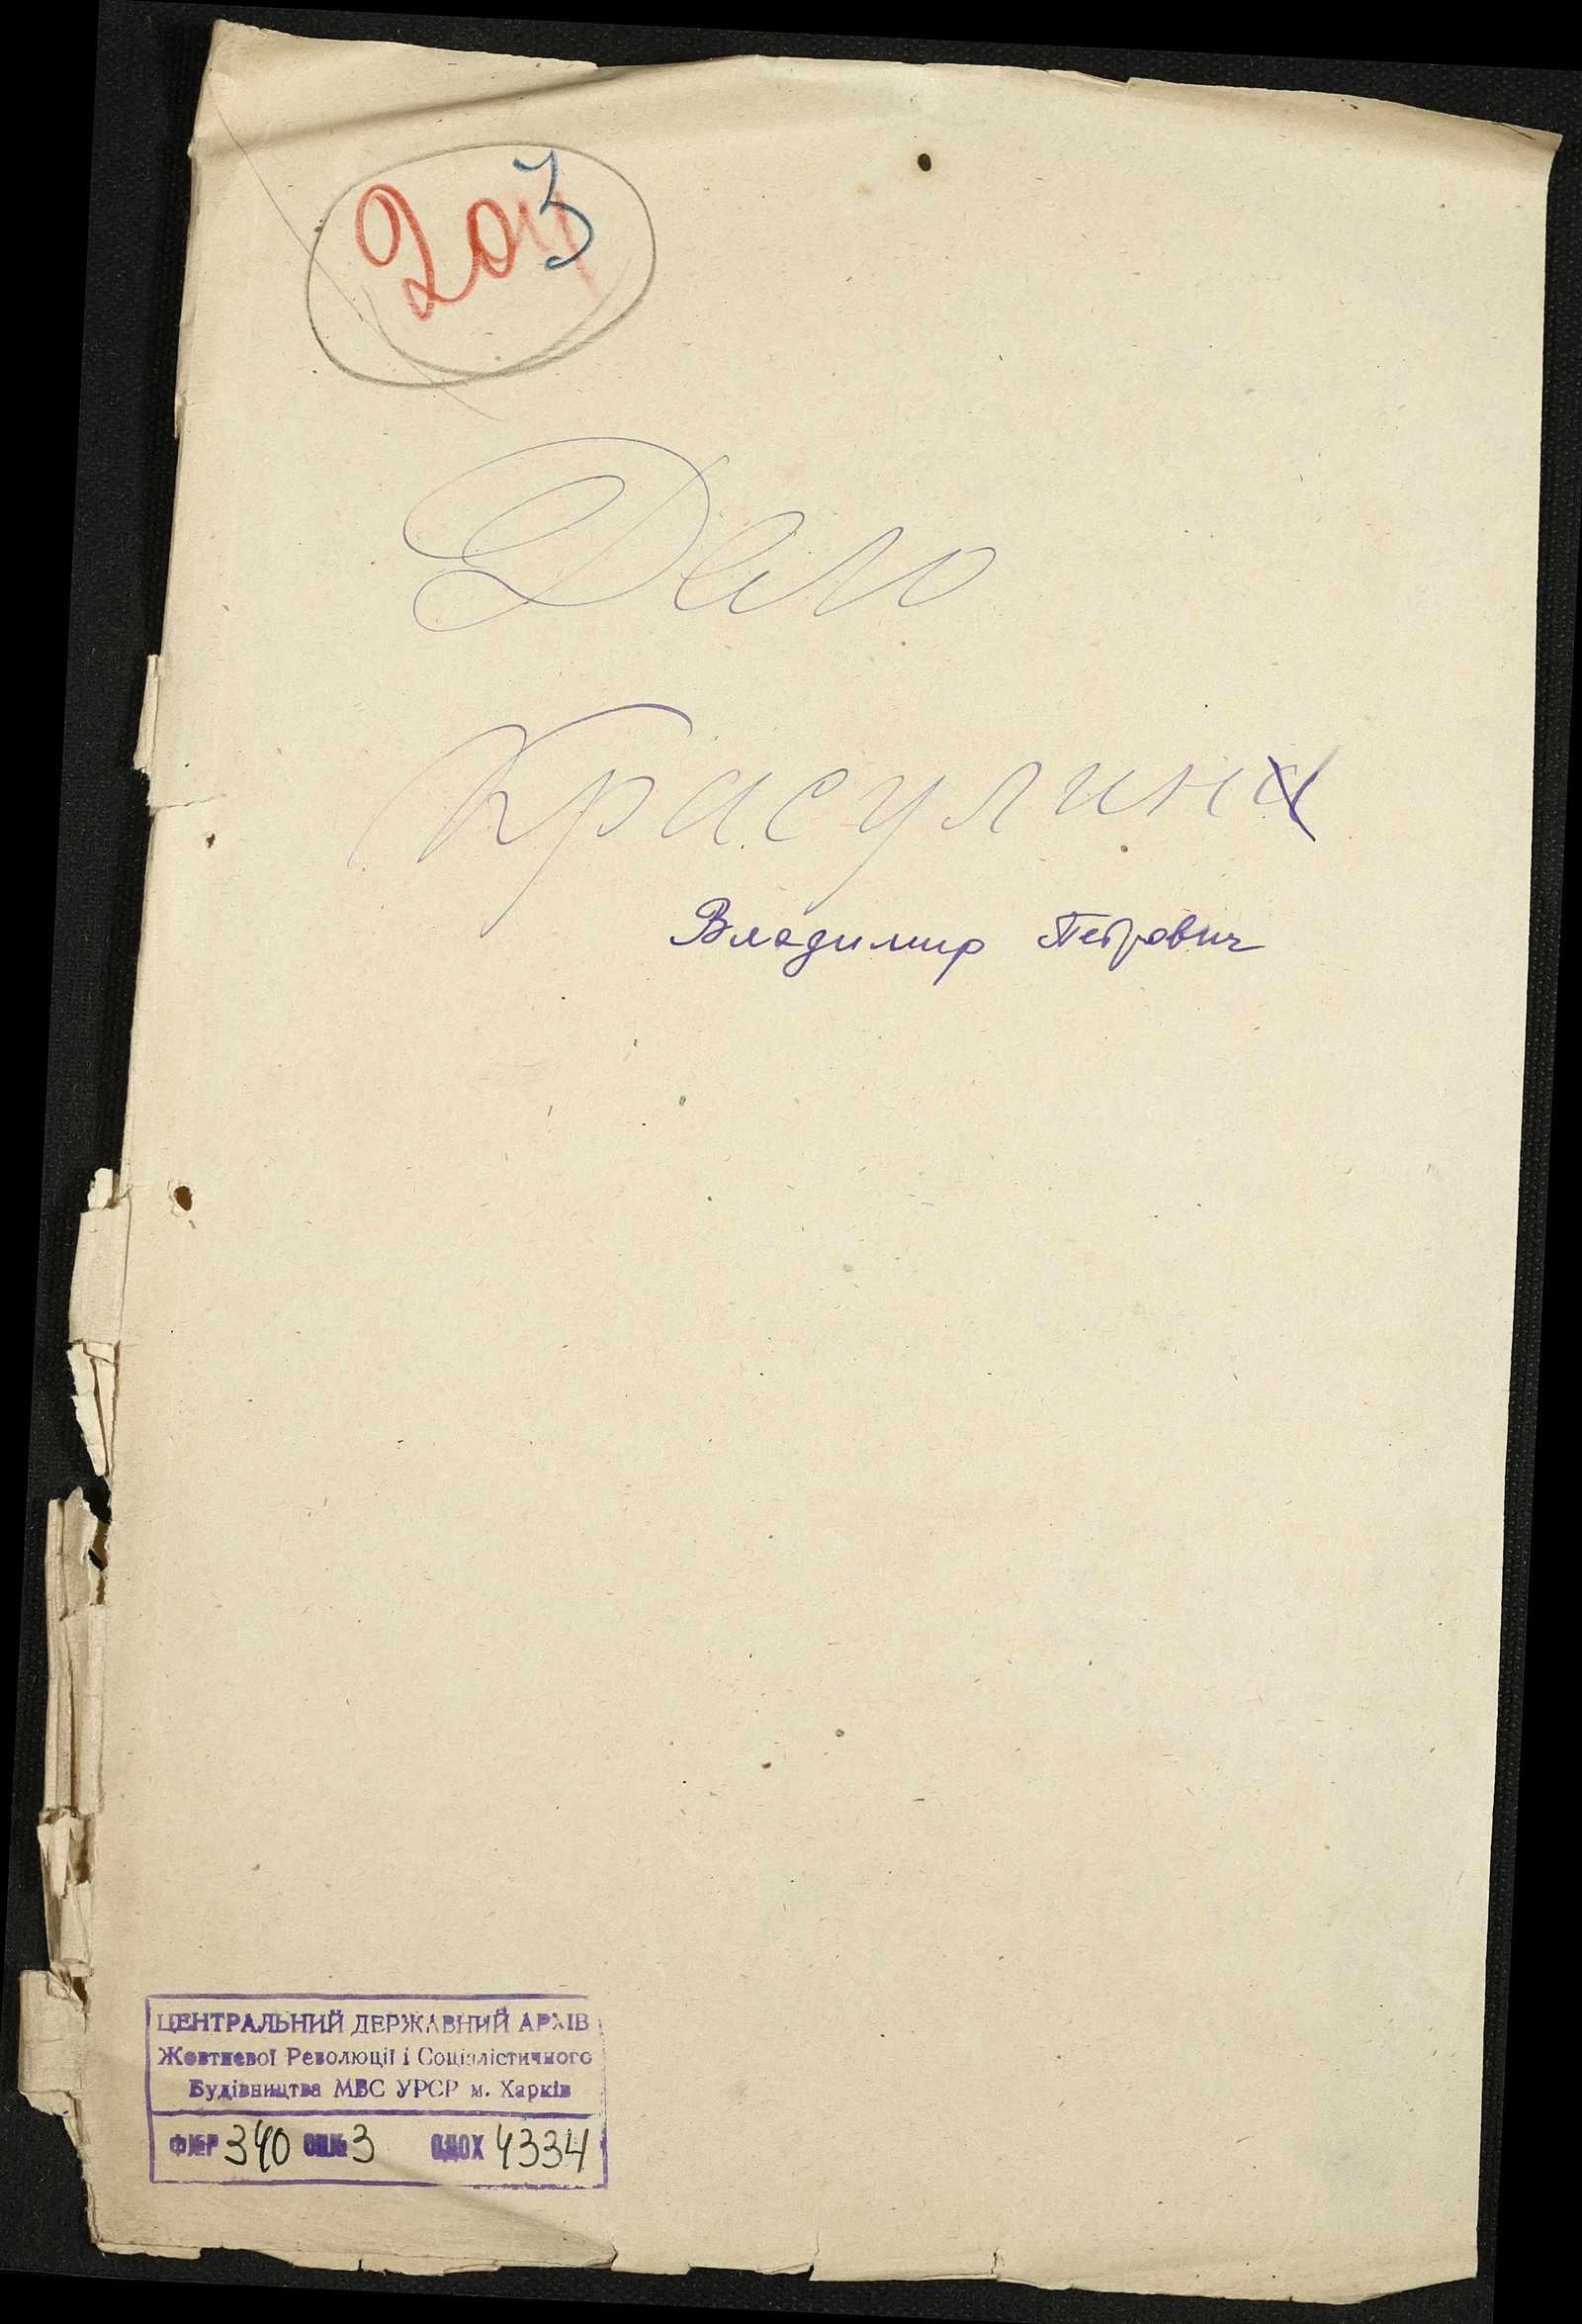 203
Дело
Красулин
Владимир Петрович
ЦЕНТРАЛЬНИЙ ДЕРЖАВНИЙ АРХІВ
Жовтневої Революції і Соціалістичного
Будівництва МВС УРСР м. Харків
Ф№Р 340 ОП№ 3 ОДОХ 4334